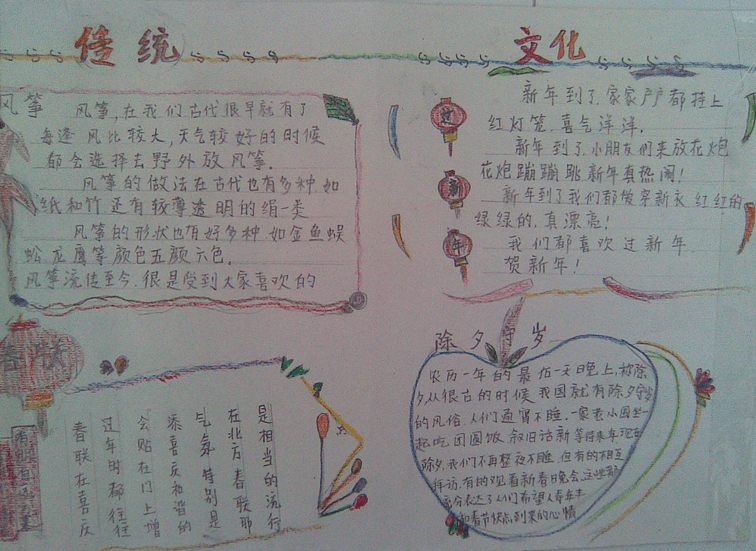 传统 文化
风筝
风筝,在我们古代很早就有了
每逢风比较大,天气较好的时候
都会选择去野外放风筝.
风筝的做法在古代也有多种如
纸和竹还有较薄透明的绢一类
风筝的形状也有好多种如金鱼蜈
蚣龙鹰等颜色五颜六色.
风筝流传至今.很是受到大家喜欢的
过
新
年
新年到了.家家户户都挂上
红灯笼.喜气洋洋.
新年到了.小朋友们来放花炮
花炮蹦蹦跳新年真热闹!
新年到了我们都爱穿新衣红红的
绿绿的,真漂亮!
我们都喜欢过新年.
贺新年!
春联
春联在喜庆
过年时都往往
会贴在门上增
添喜庆和谐的
气氛特别是
在北方春联那
是相当的流行
除夕守岁
农历一年的最后一天晚上,被称除
夕.从很古的时候.我国就有除夕守岁
的风俗.人们通宵不睡.一家老小围坐一
起吃团圆饭.叙旧话新等待来年.现在
除夕.我们不再整夜不睡.但有的相互
拜访.有的观看新春晚会.这些都
充分表达了人们希望
和春节快点到来的心情